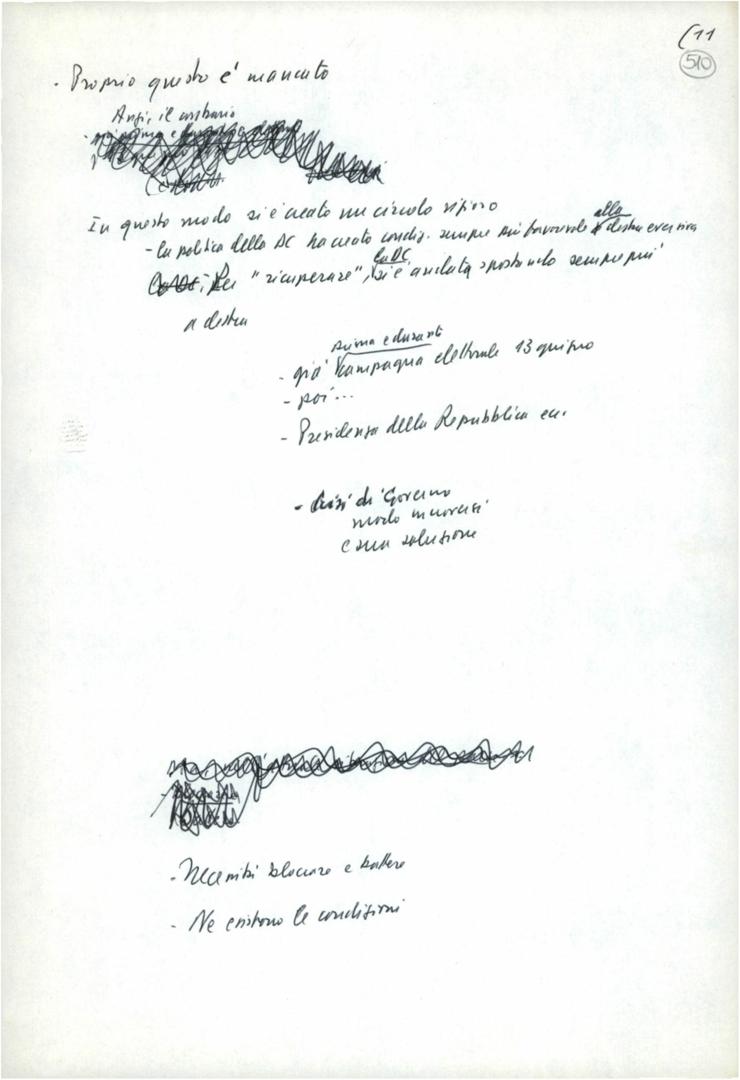 (11
510
- Proprio questo è mancato
Anzi, il contrario
In questo modo si è creato un circolo vizioso
- la politica della DC ha creato condiz. sempre più favorevoli alla destra eversiva
Per "ricuperare", la DC si è andata spostando sempre più
a destra
prima e durante
- già campagna elettorale 13 giugno
- poi...
- Presidenza della Repubblica ecc.
- Crisi di Governo
modo muoversi
e sua soluzione
- Necessità bloccare e battere
- Ne esistono le condizioni